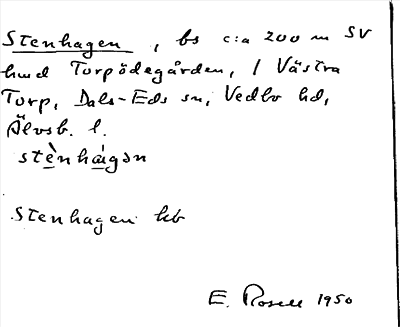 Stenhagen, bs c:a 200 m SV
hmd Torpödegården, 1 Västra
Torp, Dals-Eds sn, Vedbo hd,
Älvsb. l.
stènhágən
Stenhagen kb
E. Rosell 1950